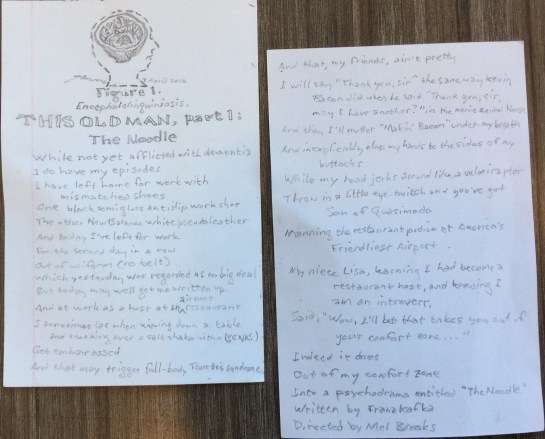 April 2026
Figure 1.
THIS OLD MAN, part 1:
The Noodle
While not yet afflicted with dementia
I do have my episodes
I have left home for work with
mismatched shoes
One black semiglass antislip work shoe
The other New Balance white pseudoleather
And today I've left for work
For the second day in a row
Out of uniform (no belt)
Which yesterday was regarded as no big deal
But today may well get me written up
And at work as a host at an airport restaurant
I sometimes (as when wiping down a table
and knocking over a salt shaker within (SEWS!)
Get embarrassed
And that may trigger full-body Tourette's syndrome
And that, my friends, ain't pretty
I will say "Thank you, sir" the same way Kevin
Bacon did when he said "Thank you, sir,
may I have another?" in the movie Animal House
And then I'll mutter "Makin' Bacon" under my breath
And inexplicably slap my hands to the sides of my
buttocks
While my head jerks around like a velociraptor
Throw in a little eye-twitch and you've got
Son of Quasimodo
Manning the restaurant podium at America's
Friendliest Airport.
My niece Lisa, learning I had become a
restaurant host, and knowing I
am an introvert,
Said, "Wow, I'll bet that takes you out of
your comfort zone..."
Indeed it does
Out of my comfort zone
Into a psychodrama entitled "The Noodle"
Written by Franz Kafka
Directed by Mel Brooks